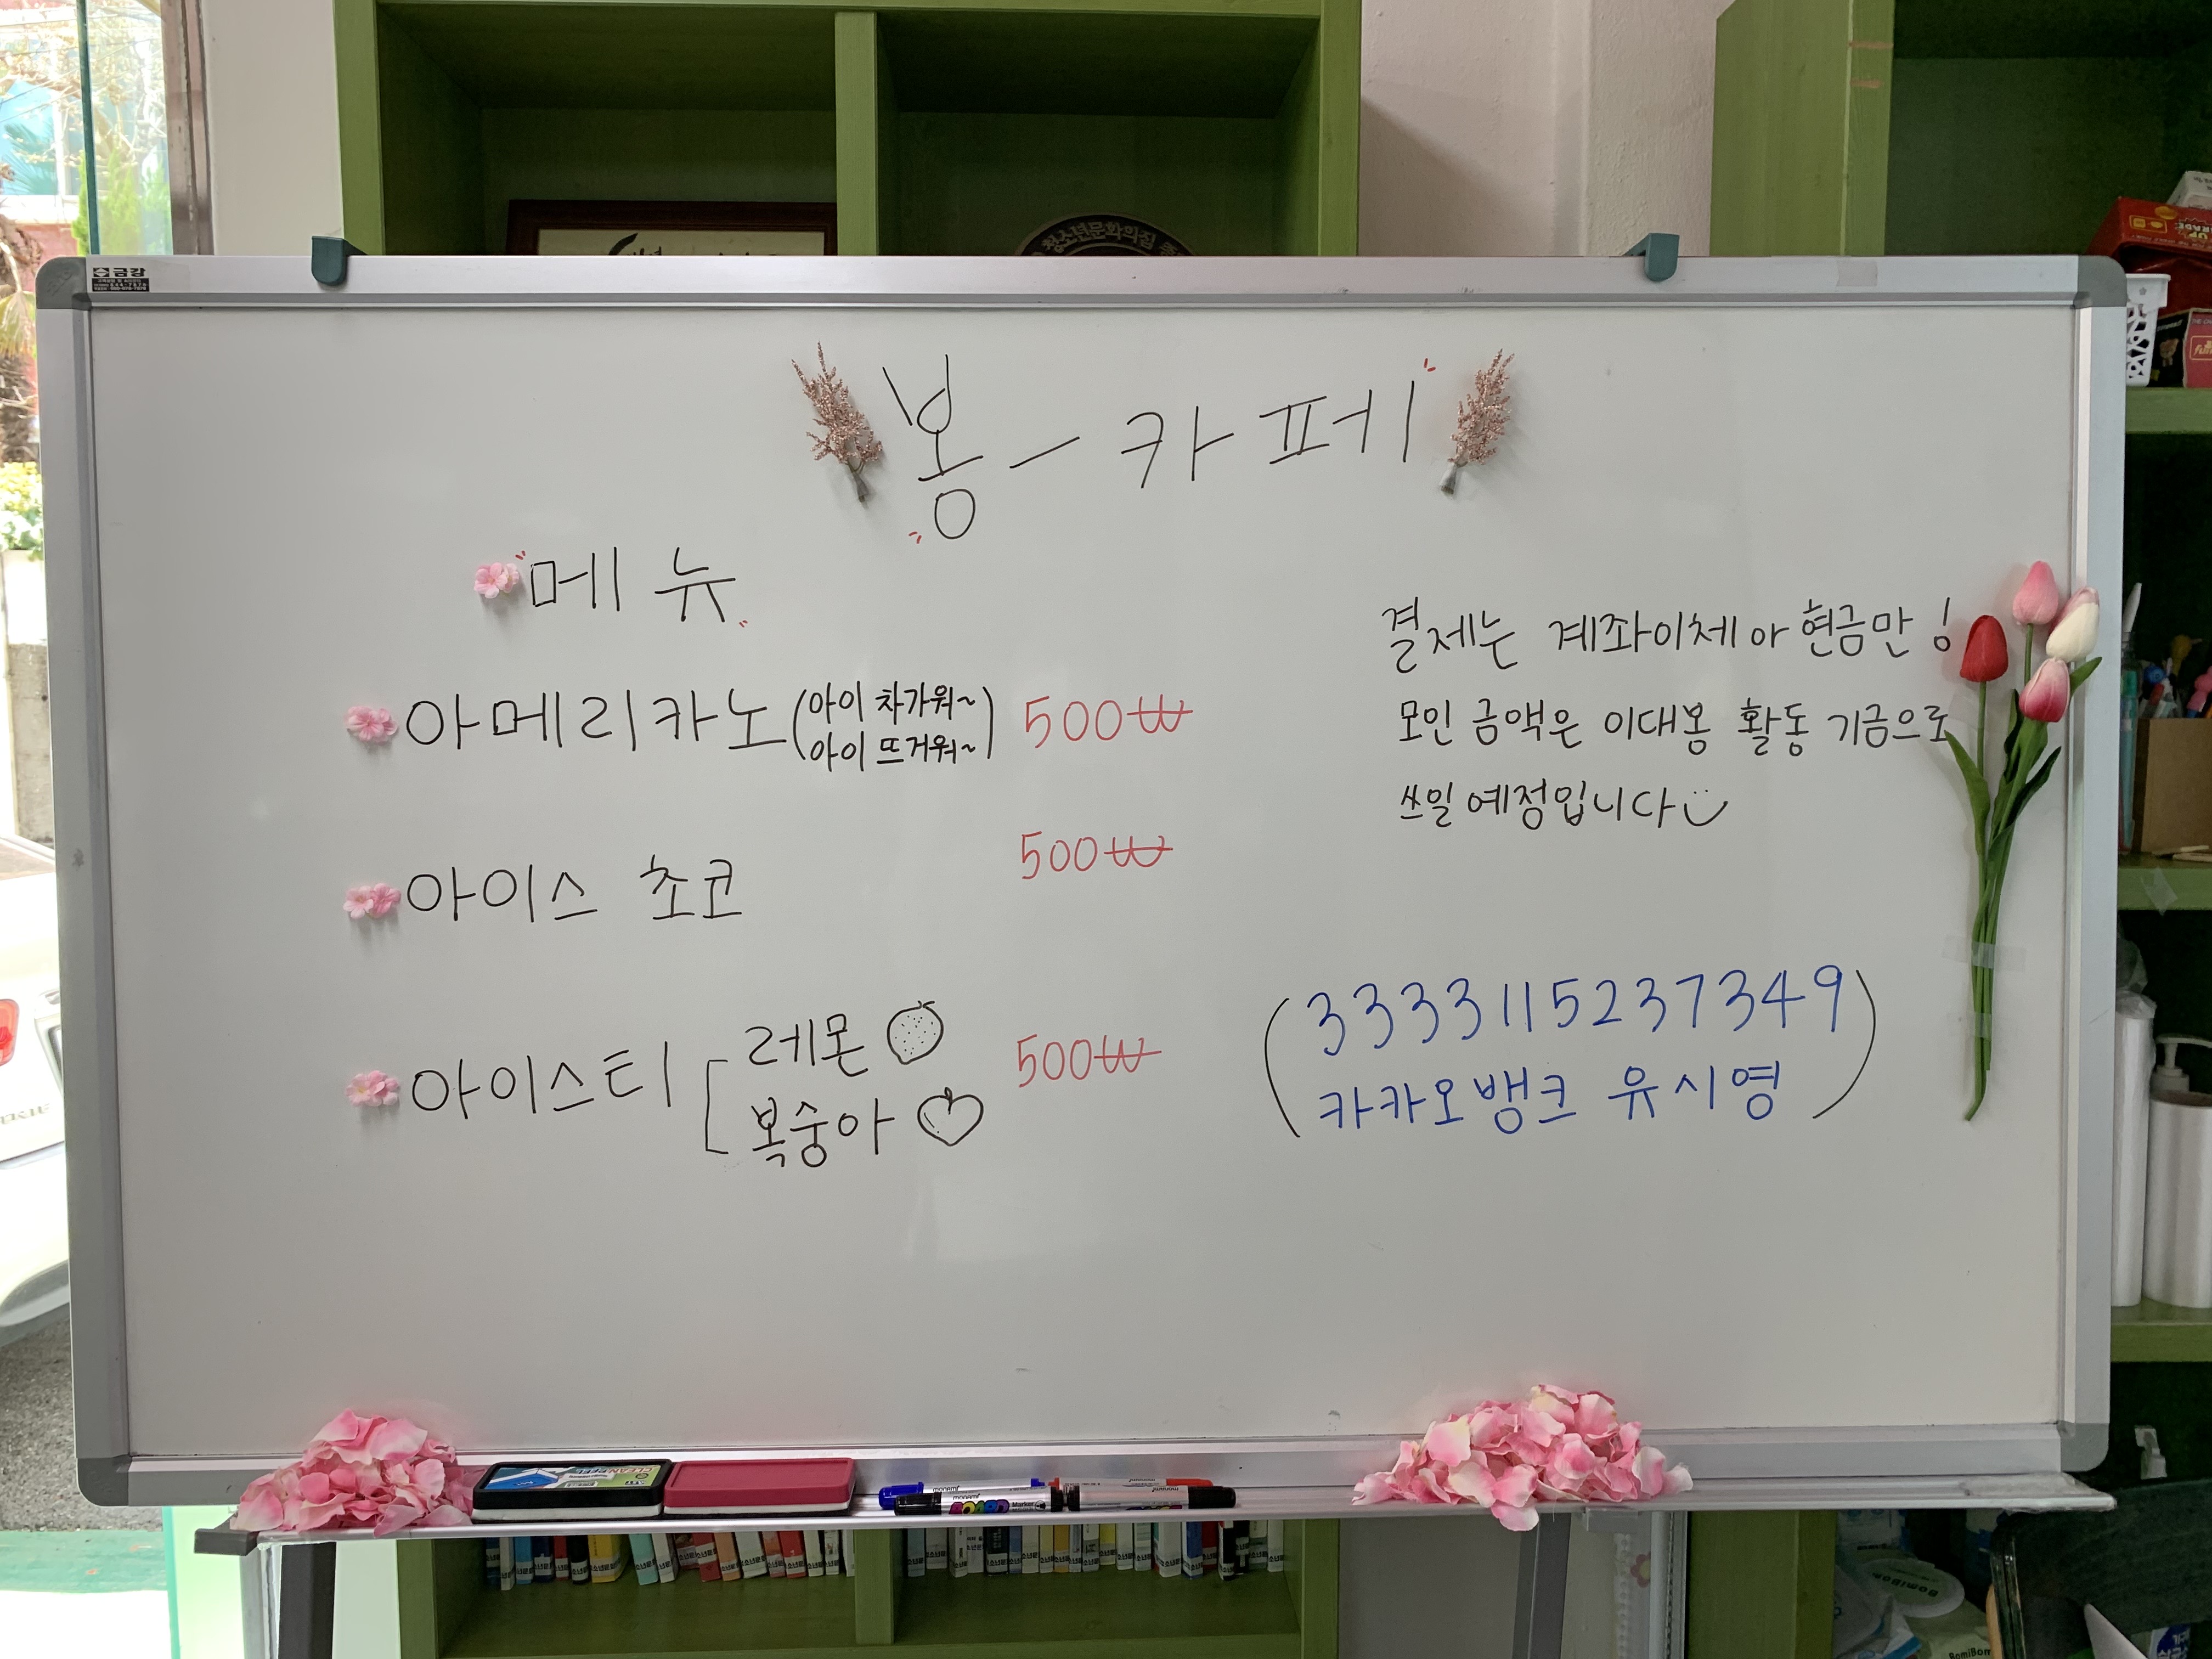 청소년문화의집
금강
봉 - 카페
메뉴
아메리카노 (아이 차가워~ 500₩
아이 뜨거워~)
아이스 초코 500₩
아이스티 [ 레몬 500₩
복숭아
결제는 계좌이체아 현금만!
모인 금액은 이대봉 활동 기금으로
쓰일 예정입니다
(3333115237349
카카오뱅크 유시영)
monami
Marker
monami
BomiBom
BomiBom